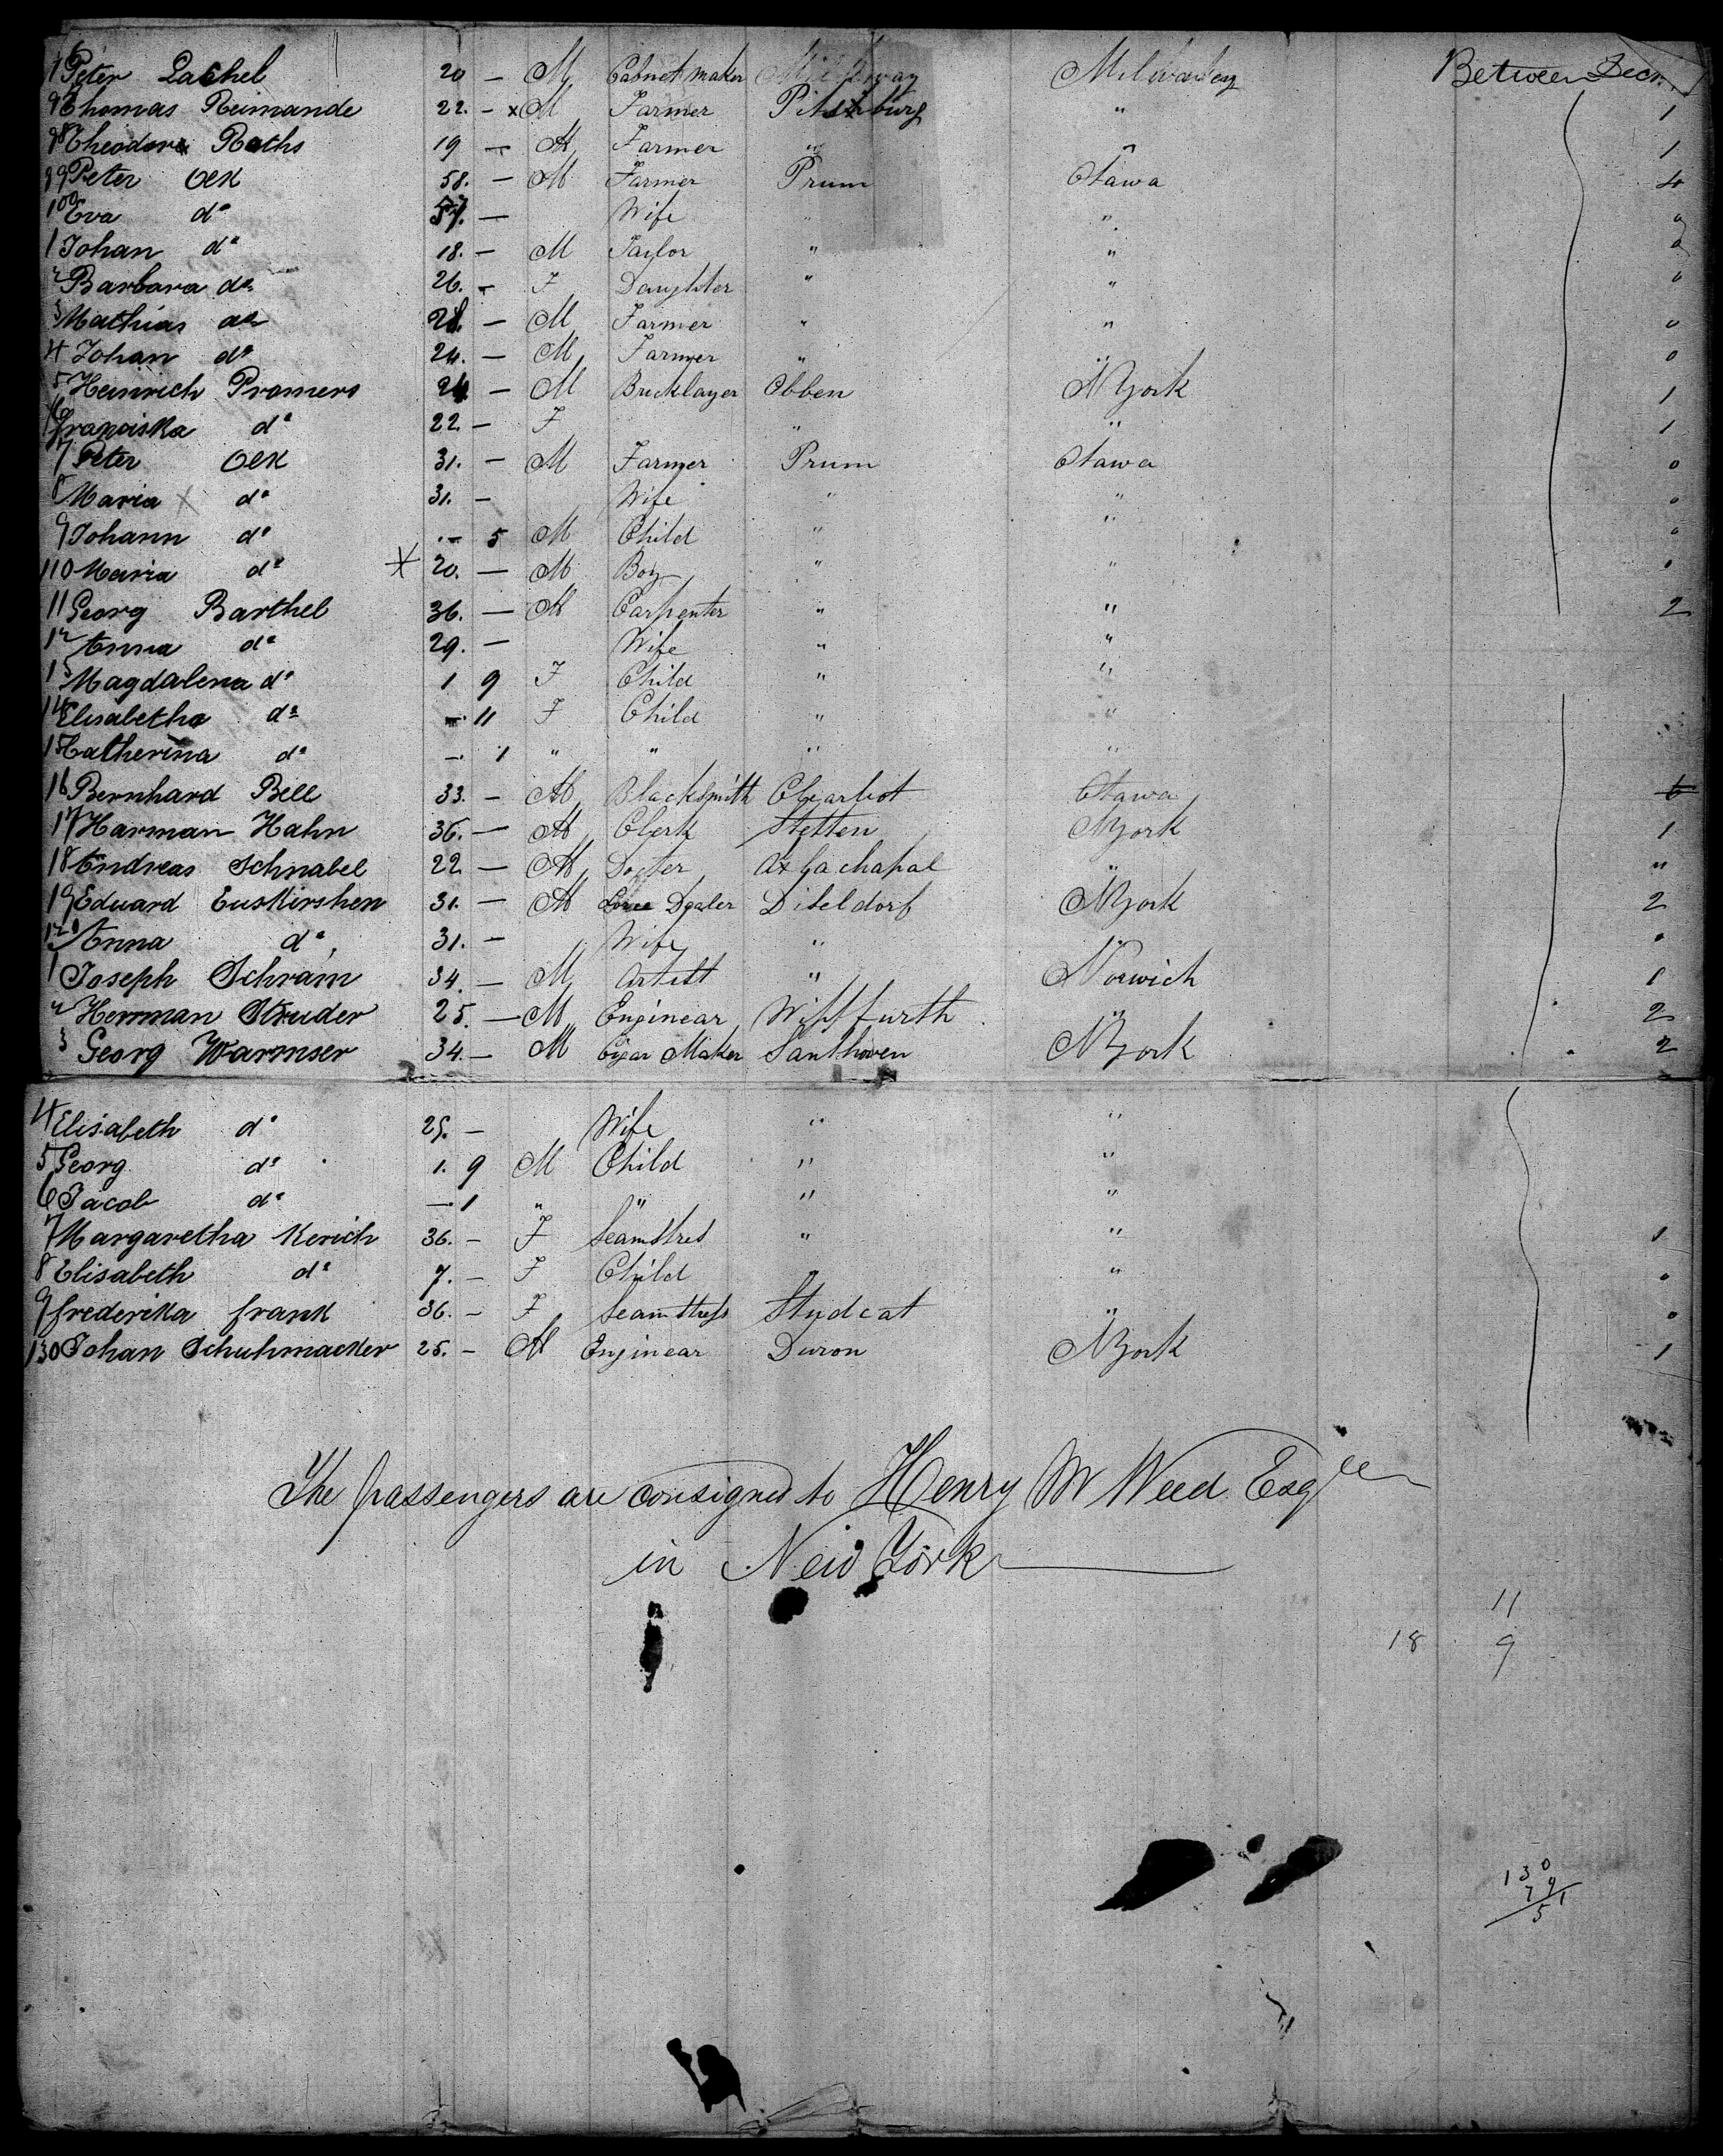 Peter Lachel 20 — M Cabnet maker Milwaukey Between Decks
Thomas Reimande 22. — x M Farmer Pitsburg " 1
98 Theodor Roths 19 — M Farmer " " 1
99 Peter Oek 58. — M Farmer Prum Otawa 4
100 Eva do 57. — Wife " " 0
1 Johan do 18. — M Taylor " " 0
2 Barbara do 26. — F Daughter " " 0
3 Mathias do 28. — M Farmer " " 0
4 Johan do 24. — M Farmer " " 0
5 Heinrich Promers 24 — M Bricklayer Obben NYork 1
6 franciska do 22. — F " " 1
7 Peter Oek 31. — M Farmer Prum Otawa 0
8 Maria x do 31. — Wife " " 0
9 Johann do — 5 M Child " " 0
110 Maria do x 20. — M Boy " " 0
11 Georg Barthel 36. — M Carpenter " " 2
12 Anna do 29. — Wife " "
13 Magdalena do 1 9 F Child " "
14 Elisabetha do — 11 F Child " "
15 Catherina do — 1 " " " "
16 Bernhard Bell 33. — M Blacksmith Otawa
17 Harman Hahn 36. — M Clerk Stetten NYork 1
18 Andreas Schnabel 22 — M Docter Ax La chapal " "
19 Eduard Euskirshen 31. — M Dealer Diseldorf NYork 2
120 Anna do 31. — Wife " " 0
1 Joseph Schram 34. — M Artist " Norwich 1
2 Herman Struder 25. — M Enginear Wipffurth " 2
3 Georg Warmser 34 — M Cigar Maker Santhoven NYork 2
4 Elisabeth do 25. — Wife " "
5 Georg do 1. 9 M Child " "
6 Jacob do — 1 " " " "
7 Margaretha Kerich 36. — F Seamstres " " 1
8 Elisabeth do 7. — F Child " " 0
9 frederika frank 36. — F Seamstress Studcat " 0
130 Johan Schuhmacker 25. — M Enginear Duron NYork 1
The passengers are consigned to Henry W Weed Esqre
in New York
11
18 9
130
79
51